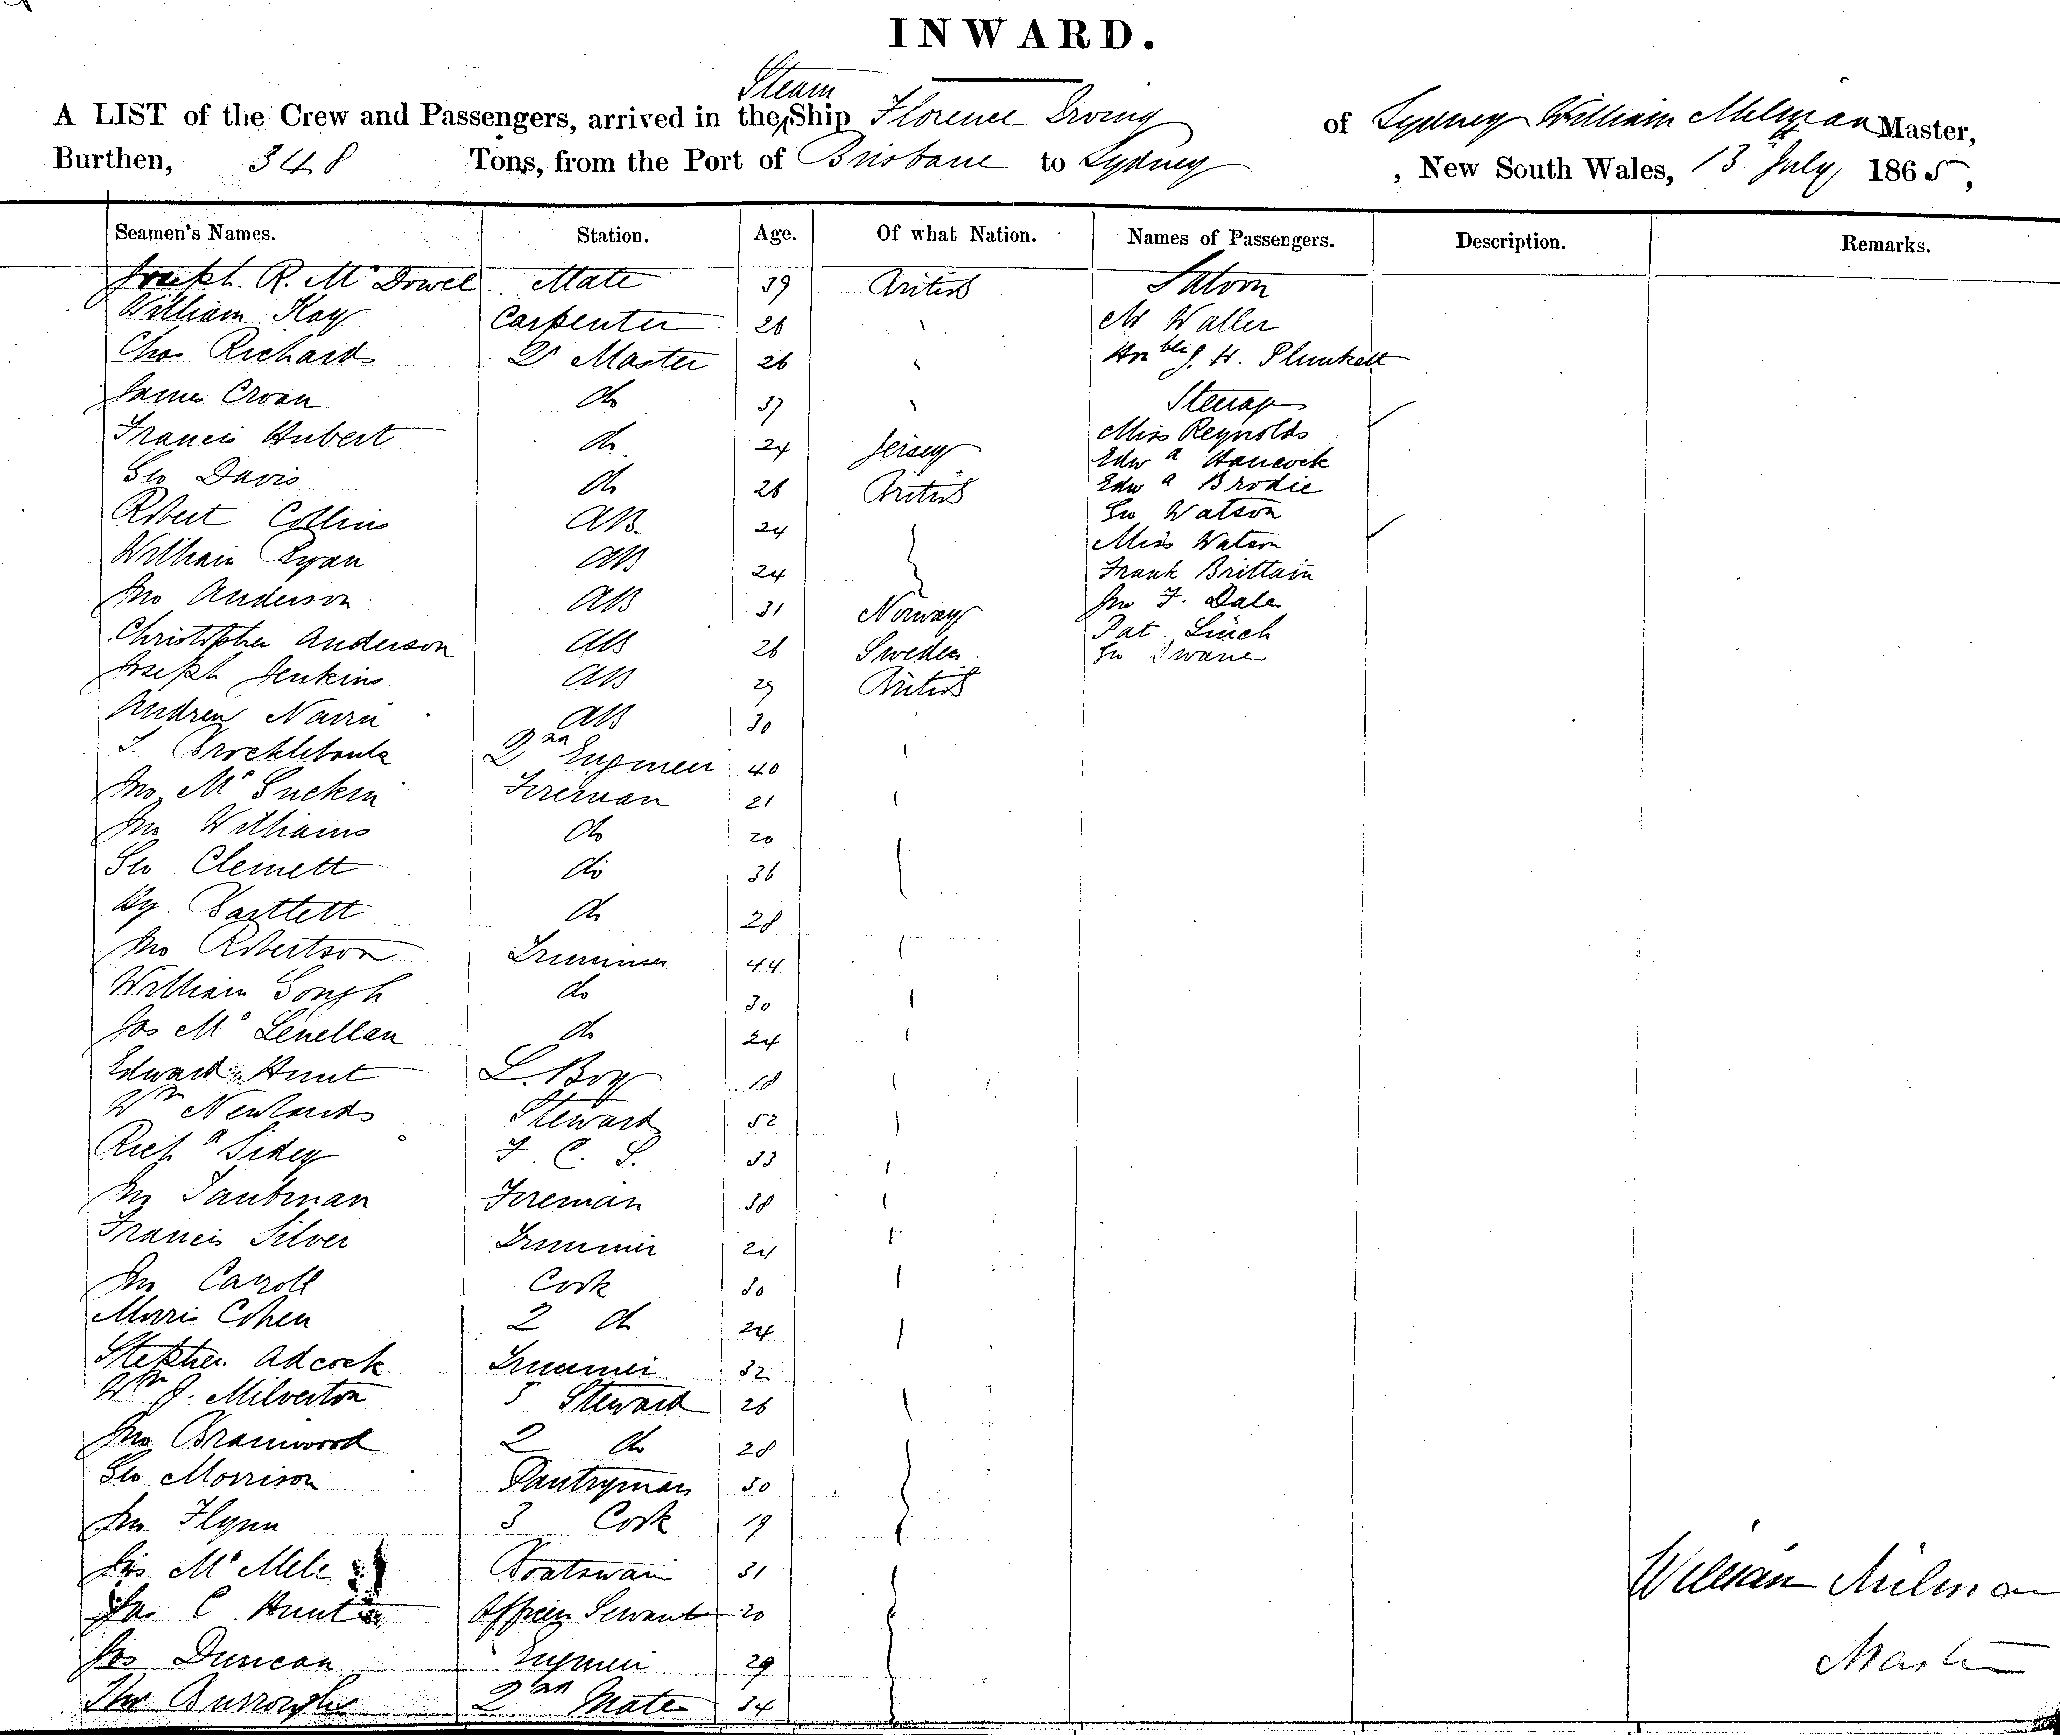 INWARD.
Steam
A LIST of the Crew and Passengers, arrived in the Ship Florence Irving of Sydney William Milman Master,
Burthen, 348 Tons, from the Port of Brisbane to Sydney, New South Wales, 13 July 1865,
Seamen's Names. Station. Age. Of what Nation. Names of Passengers. Description. Remarks.
Joseph R. McDowel Mate 39 British Saloon
William Kay Carpenter 26 Mr Waller
Chas Richards Qr Master 26 Honble J. H. Plunkett
James Croan do 37 Steerage
Francis Hubert do 24 Jersey Miss Reynolds
Geo Davis do 26 British Edwd Hancock
Edwd Brodie
Robert Collins AB 24 Geo Watson
William Ryan AB 24 Miss Watson
Frank Brittain
Jno Anderson AB 31 Norway Jno F. Dale
Christopher Anderson AB 26 Sweden Pat Linch
Geo Dwane
Joseph Jenkins AB 29 British
Andrew Navin AB 30
T. Brocklebank 2nd Engineer 40
Jno Mc Fireman 21
Jno Williams do 20
Geo Clemett do 36
Hy. Bartlett do 28
Jno Robertson Trimmer 44
William Gough do 30
Jas McLenellan do 24
Edward Hunt L. Boy 18
Wm Newlands Steward 52
Richd Sidey F. C. S. 33
Jno Taubman Fireman 38
Francis Silver Trimmer 24
Jno Carroll Cook 30
Morris Cohen 2 do 24
Stephen Adcock Trimmer 32
Wm J. Milverton Steward 26
Jno Bramwood 2 do 28
Geo Morrison Pantryman 30
Jno Flynn 3 Cook 19
Jas McMele Boatswain 31
Jas C Hunt Officers Servant 20
Jas Duncan Engineer 29
Thos Burroughs 2nd Mate 34
William Milman
Master